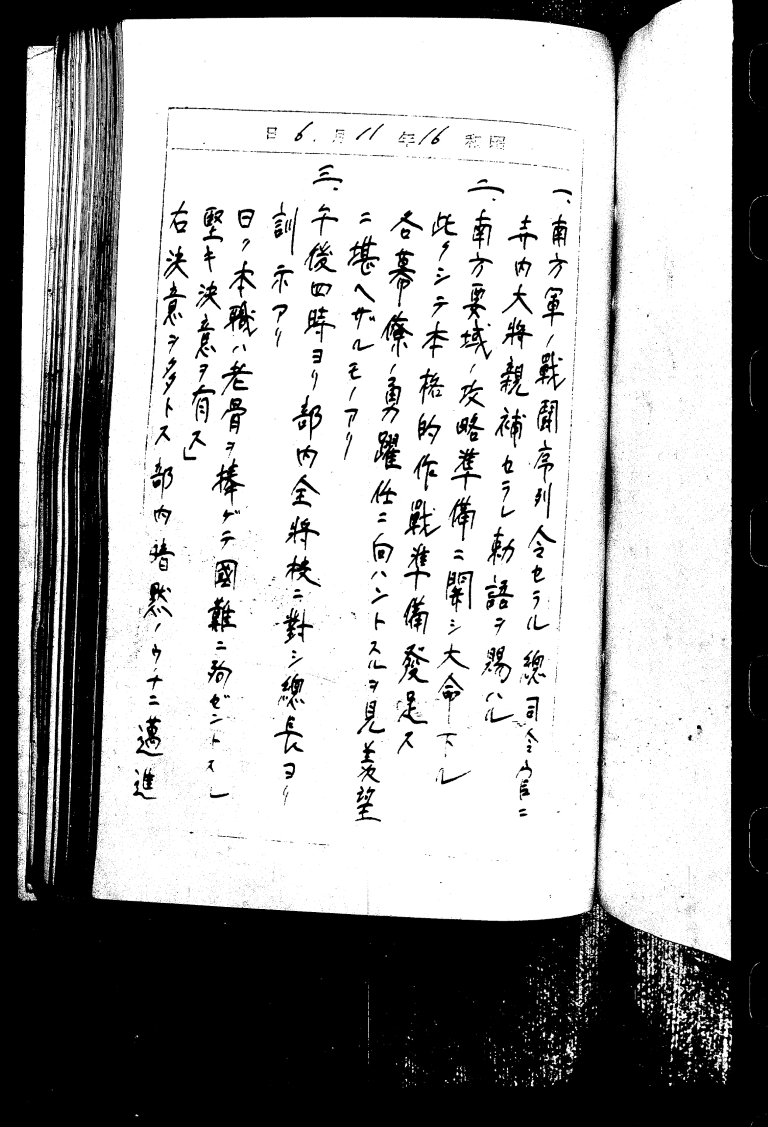 昭和16年11月6日
一、南方軍ノ戰鬪序列令セラル總司令官ニ
寺内大將親補セラレ勅語ヲ賜ハル
二、南方要域ノ攻略準備ニ關シ大命下ル
此クシテ本格的作戰準備發足ス
各幕僚ノ勇躍任ニ向ハントスルヲ見羨望
ニ堪ヘザルモノアリ
三、午後四時ヨリ部内全將校ニ對シ總長ヨリ
訓示アリ
曰ク本職ハ老骨ヲ捧ゲテ國難ニ殉ゼントス」
堅キ決意ヲ有ス」
右決意ヲ多トス部内暗默ノウチニ邁進